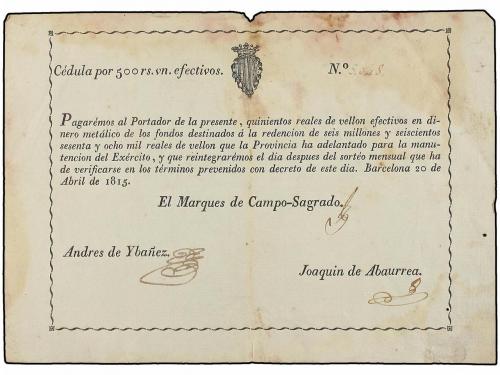 Cédula por 500 rs. vn. efectivos.
N.º
Pagarémos al Portador de la presente, quinientos reales de vellon efectivos en di-
nero metálico de los fondos destinados á la redencion de seis millones y seiscientos
sesenta y ocho mil reales de vellon que la Provincia ha adelantado para la manu-
tencion del Exército, y que reintegrarémos el dia despues del sortéo mensual que ha
de verificarse en los términos prevenidos con decreto de este dia. Barcelona 20 de
Abril de 1815.
El Marques de Campo-Sagrado.
Andres de Ybañez.
Joaquin de Abaurrea.